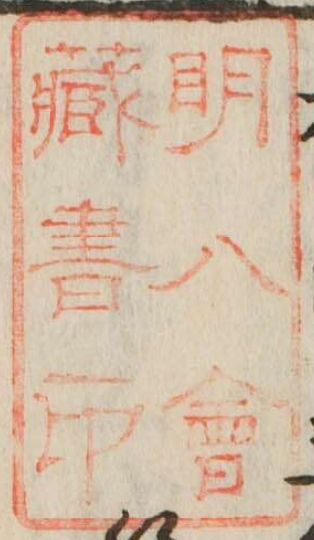 明八會
藏書印